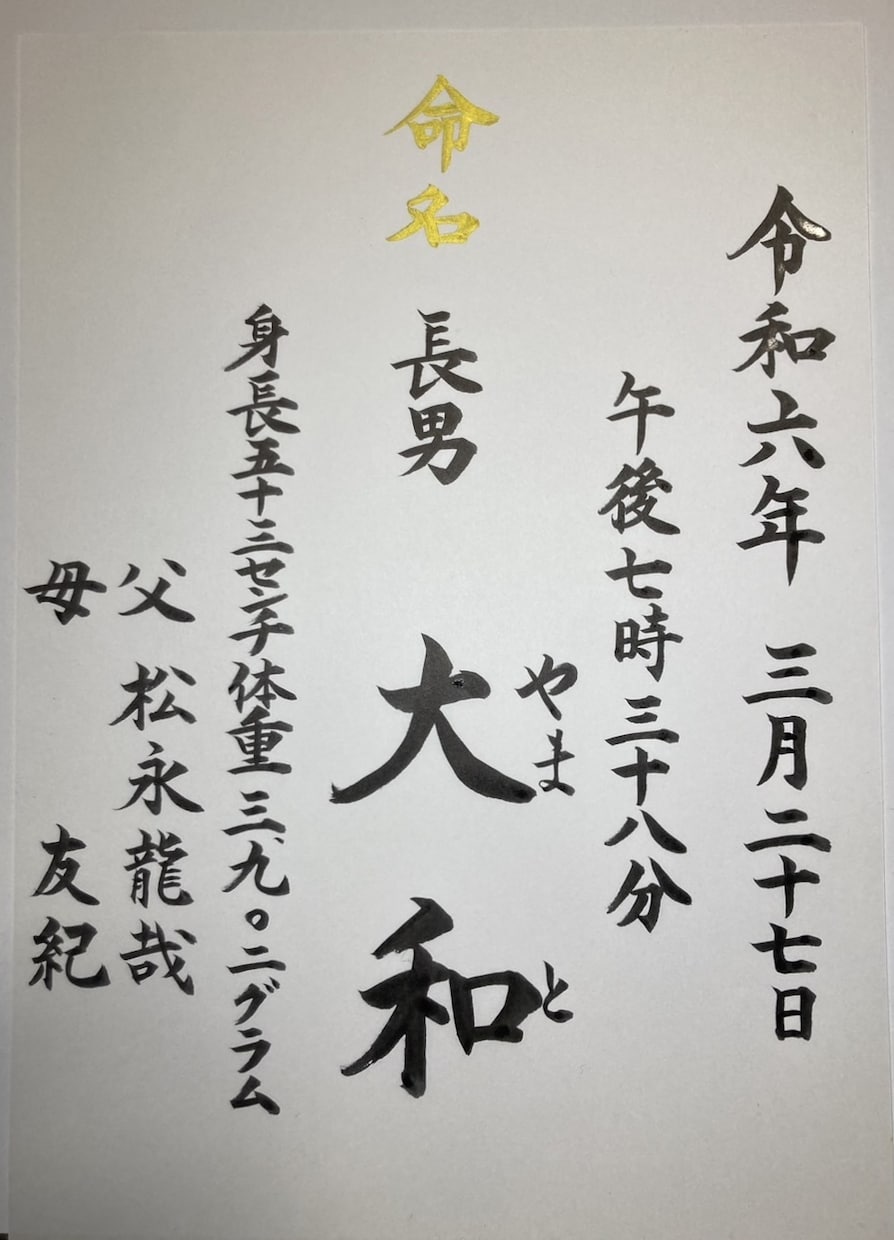 令和六年 三月二十七日
午後七時三十八分
命名 長男 大和
やまと
身長五十三センチ体重三、九〇二グラム
父 松永龍哉
母 友紀